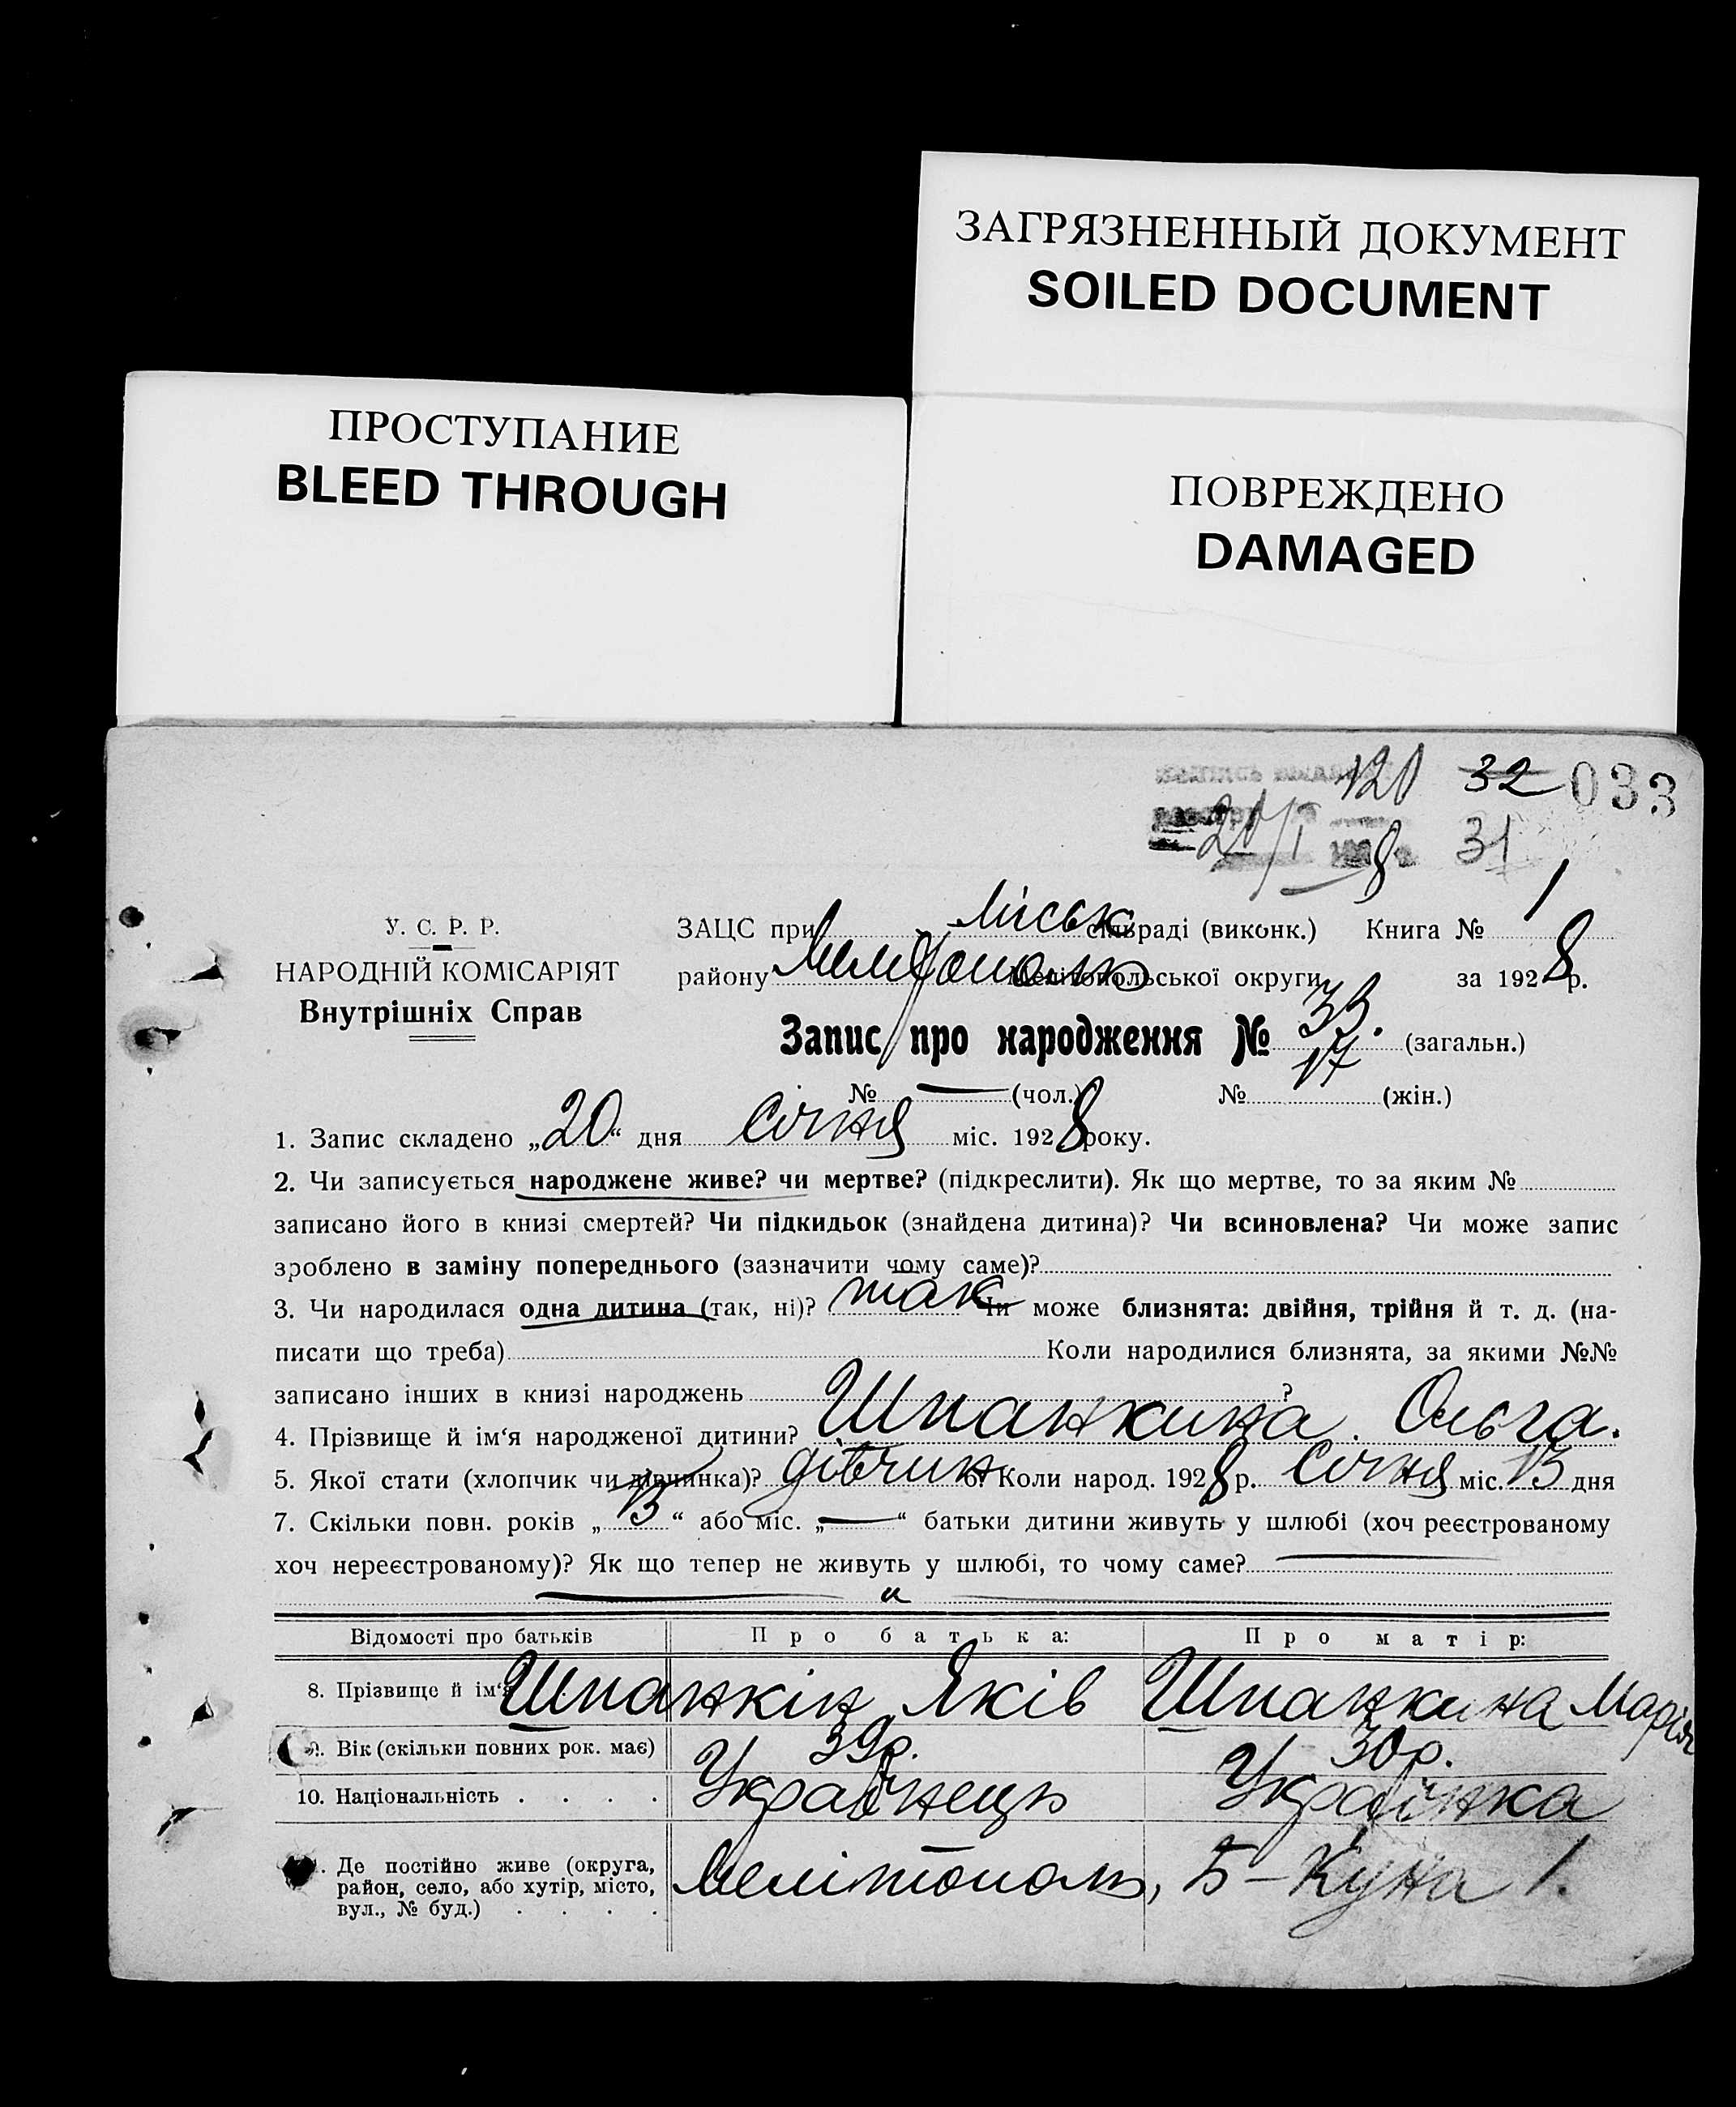 ЗАГРЯЗНЕННЫЙ ДОКУМЕНТ
SOILED DOCUMENT
ПРОСТУПАНИЕ
BLEED THROUGH
ПОВРЕЖДЕНО
DAMAGED
120 32 033
20/I 8 31
У. С. Р. Р.
НАРОДНІЙ КОМІСАРІЯТ
Внутрішніх Справ
ЗАЦС при Міськ сільраді (виконк.) Книга № 1
району Мелітополь Мелітопольської округи за 1928 р.
Запис про народження № 33. (загальн.)
№ — (чол.) № 17 (жін.)
1. Запис складено „20“ дня Січня міс. 1928 року.
2. Чи записується народжене живе? чи мертве? (підкреслити). Як що мертве, то за яким №
записано його в книзі смертей? Чи підкидьок (знайдена дитина)? Чи всиновлена? Чи може запис
зроблено в заміну попереднього (зазначити чому саме)?
3. Чи народилася одна дитина (так, ні)? так Чи може близнята: двійня, трійня й т. д. (на-
писати що треба) Коли народилися близнята, за якими №№
записано інших в книзі народжень ?
4. Прізвище й ім‘я народженої дитини? Шпанкина Ольга.
5. Якої стати (хлопчик чи дівчинка)? дівчин 6. Коли народ. 1928 р. Січня міс. 13 дня
7. Скільки повн. років „13“ або міс. „—“ батьки дитини живуть у шлюбі (хоч реєстрованому
хоч нереєстрованому)? Як що тепер не живуть у шлюбі, то чому саме? —
— „ —
Відомості про батьків Про батька: Про матір:
8. Прізвище й ім‘я Шпанкін Яків Шпанкина Марія
9. Вік (скільки повних рок. має) 39р. 30р.
10. Національність . . . . Українець Українка
. Де постійно живе (округа,
район, село, або хутір, місто,
вул., № буд.) . . . . Мелітополь, Б-Куна 1.